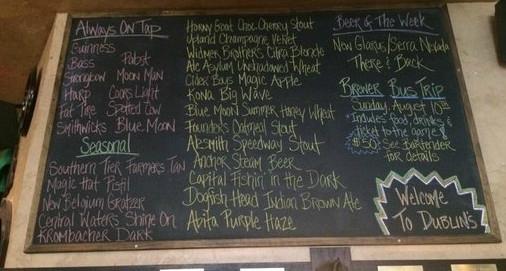 Always On Tap
Guinness
Bass Pabst
Strongbow Moon Man
Harp Coors Light
Fat Tire Spotted Cow
Smithwicks Blue Moon
Seasonal
Southern Tier Farmers Tan
Magic Hat Pistil
New Belgium Gratzer
Central Waters Shine On
Krombacher Dark
Horny Goat Choc Cherry Stout
Upland Champagne Velvet
Widmer Brothers Citra Blonde
Ale Asylum Unshadowed Wheat
Cider Boys Magic Apple
Kona Big Wave
Blue Moon Summer Honey Wheat
Founders Oatmeal Stout
Alesmith Speedway Stout
Anchor Steam Beer
Capital Fishin' in the Dark
Dogfish Head Indian Brown Ale
Abita Purple Haze
Beer of The Week
New Glarus/Sierra Nevada
There & Back
Brewer Bus Trip
Sunday, August
Includes food, drinks &
ticket to the game &
$50. See Bartender
for details
Welcome
To Dublin's